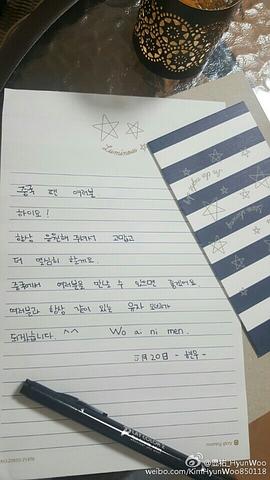 Luminous
중국 팬 여러분
하이요!
항상 응원해 주셔서 고맙고
더 열심히 할게요.
중국에서 여러분을 만날 수 있으면 좋겠어요.
여러분과 항상 같이 있는
되겠습니다. ^^ Wo ai ni men.
三月20日 - 현우 -
monning glory
@显祐_HyunWoo
weibo.com/KimHyunWoo850118